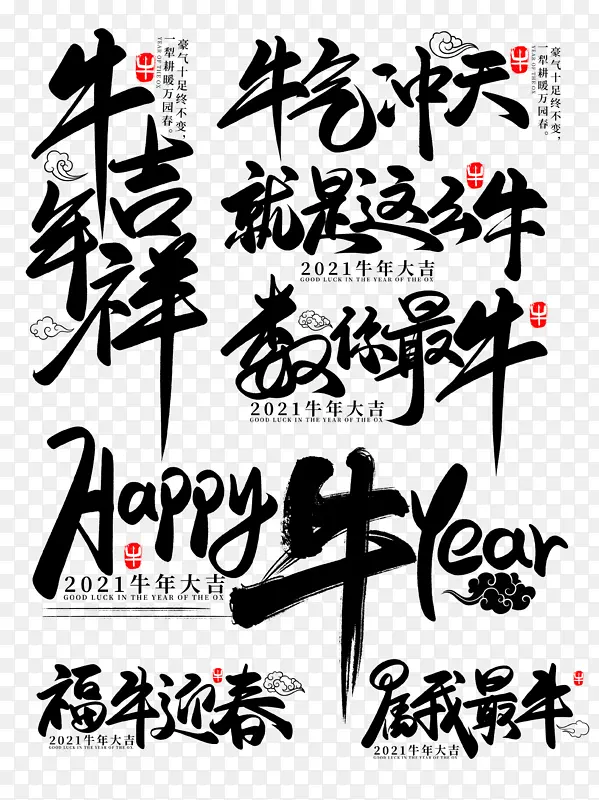 牛年吉祥
豪气十足终不变，
一犁耕暖万园春。
YEAR OF THE OX
牛气冲天
豪气十足终不变，
一犁耕暖万园春。
YEAR OF THE OX
就是这么牛
2021牛年大吉
GOOD LUCK IN THE YEAR OF THE OX
数你最牛
2021牛年大吉
GOOD LUCK IN THE YEAR OF THE OX
Happy牛Year
2021牛年大吉
GOOD LUCK IN THE YEAR OF THE OX
福牛迎春
2021牛年大吉
GOOD LUCK IN THE YEAR OF THE OX
属我最牛
2021牛年大吉
GOOD LUCK IN THE YEAR OF THE OX